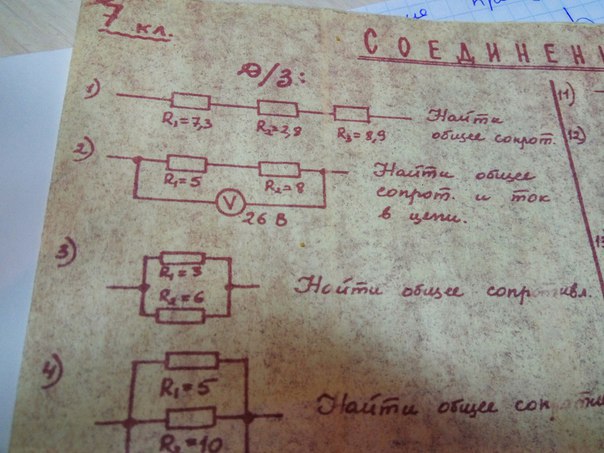 7 кл.
СОЕДИНЕНИ
Д/З:
1)
R₁=7,3
R₂=2,8
R₃=8,9
Найти
общее сопрот.
2)
R₁=5
R₂=8
V
26 В
Найти общее
сопрот. и ток
в цепи.
3)
R₁=3
R₂=6
Найти общее сопротивл.
4)
R₁=5
R₂=10
Найти общее сопроти
11)
12)